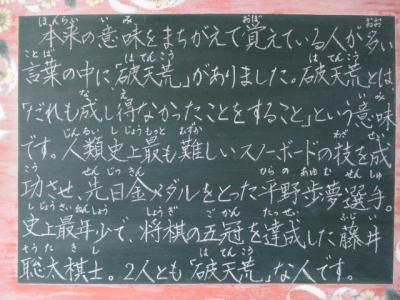 本来の意味をまちがえて覚えている人が多い
言葉の中に「破天荒」がありました。破天荒とは、
「だれも成し得なかったことをすること」という意味
です。人類史上最も難しいスノーボードの技を成
功させ、先日金メダルをとった平野歩夢選手。
史上最年少で、将棋の五冠を達成した藤井
聡太棋士。2人とも「破天荒」な人です。